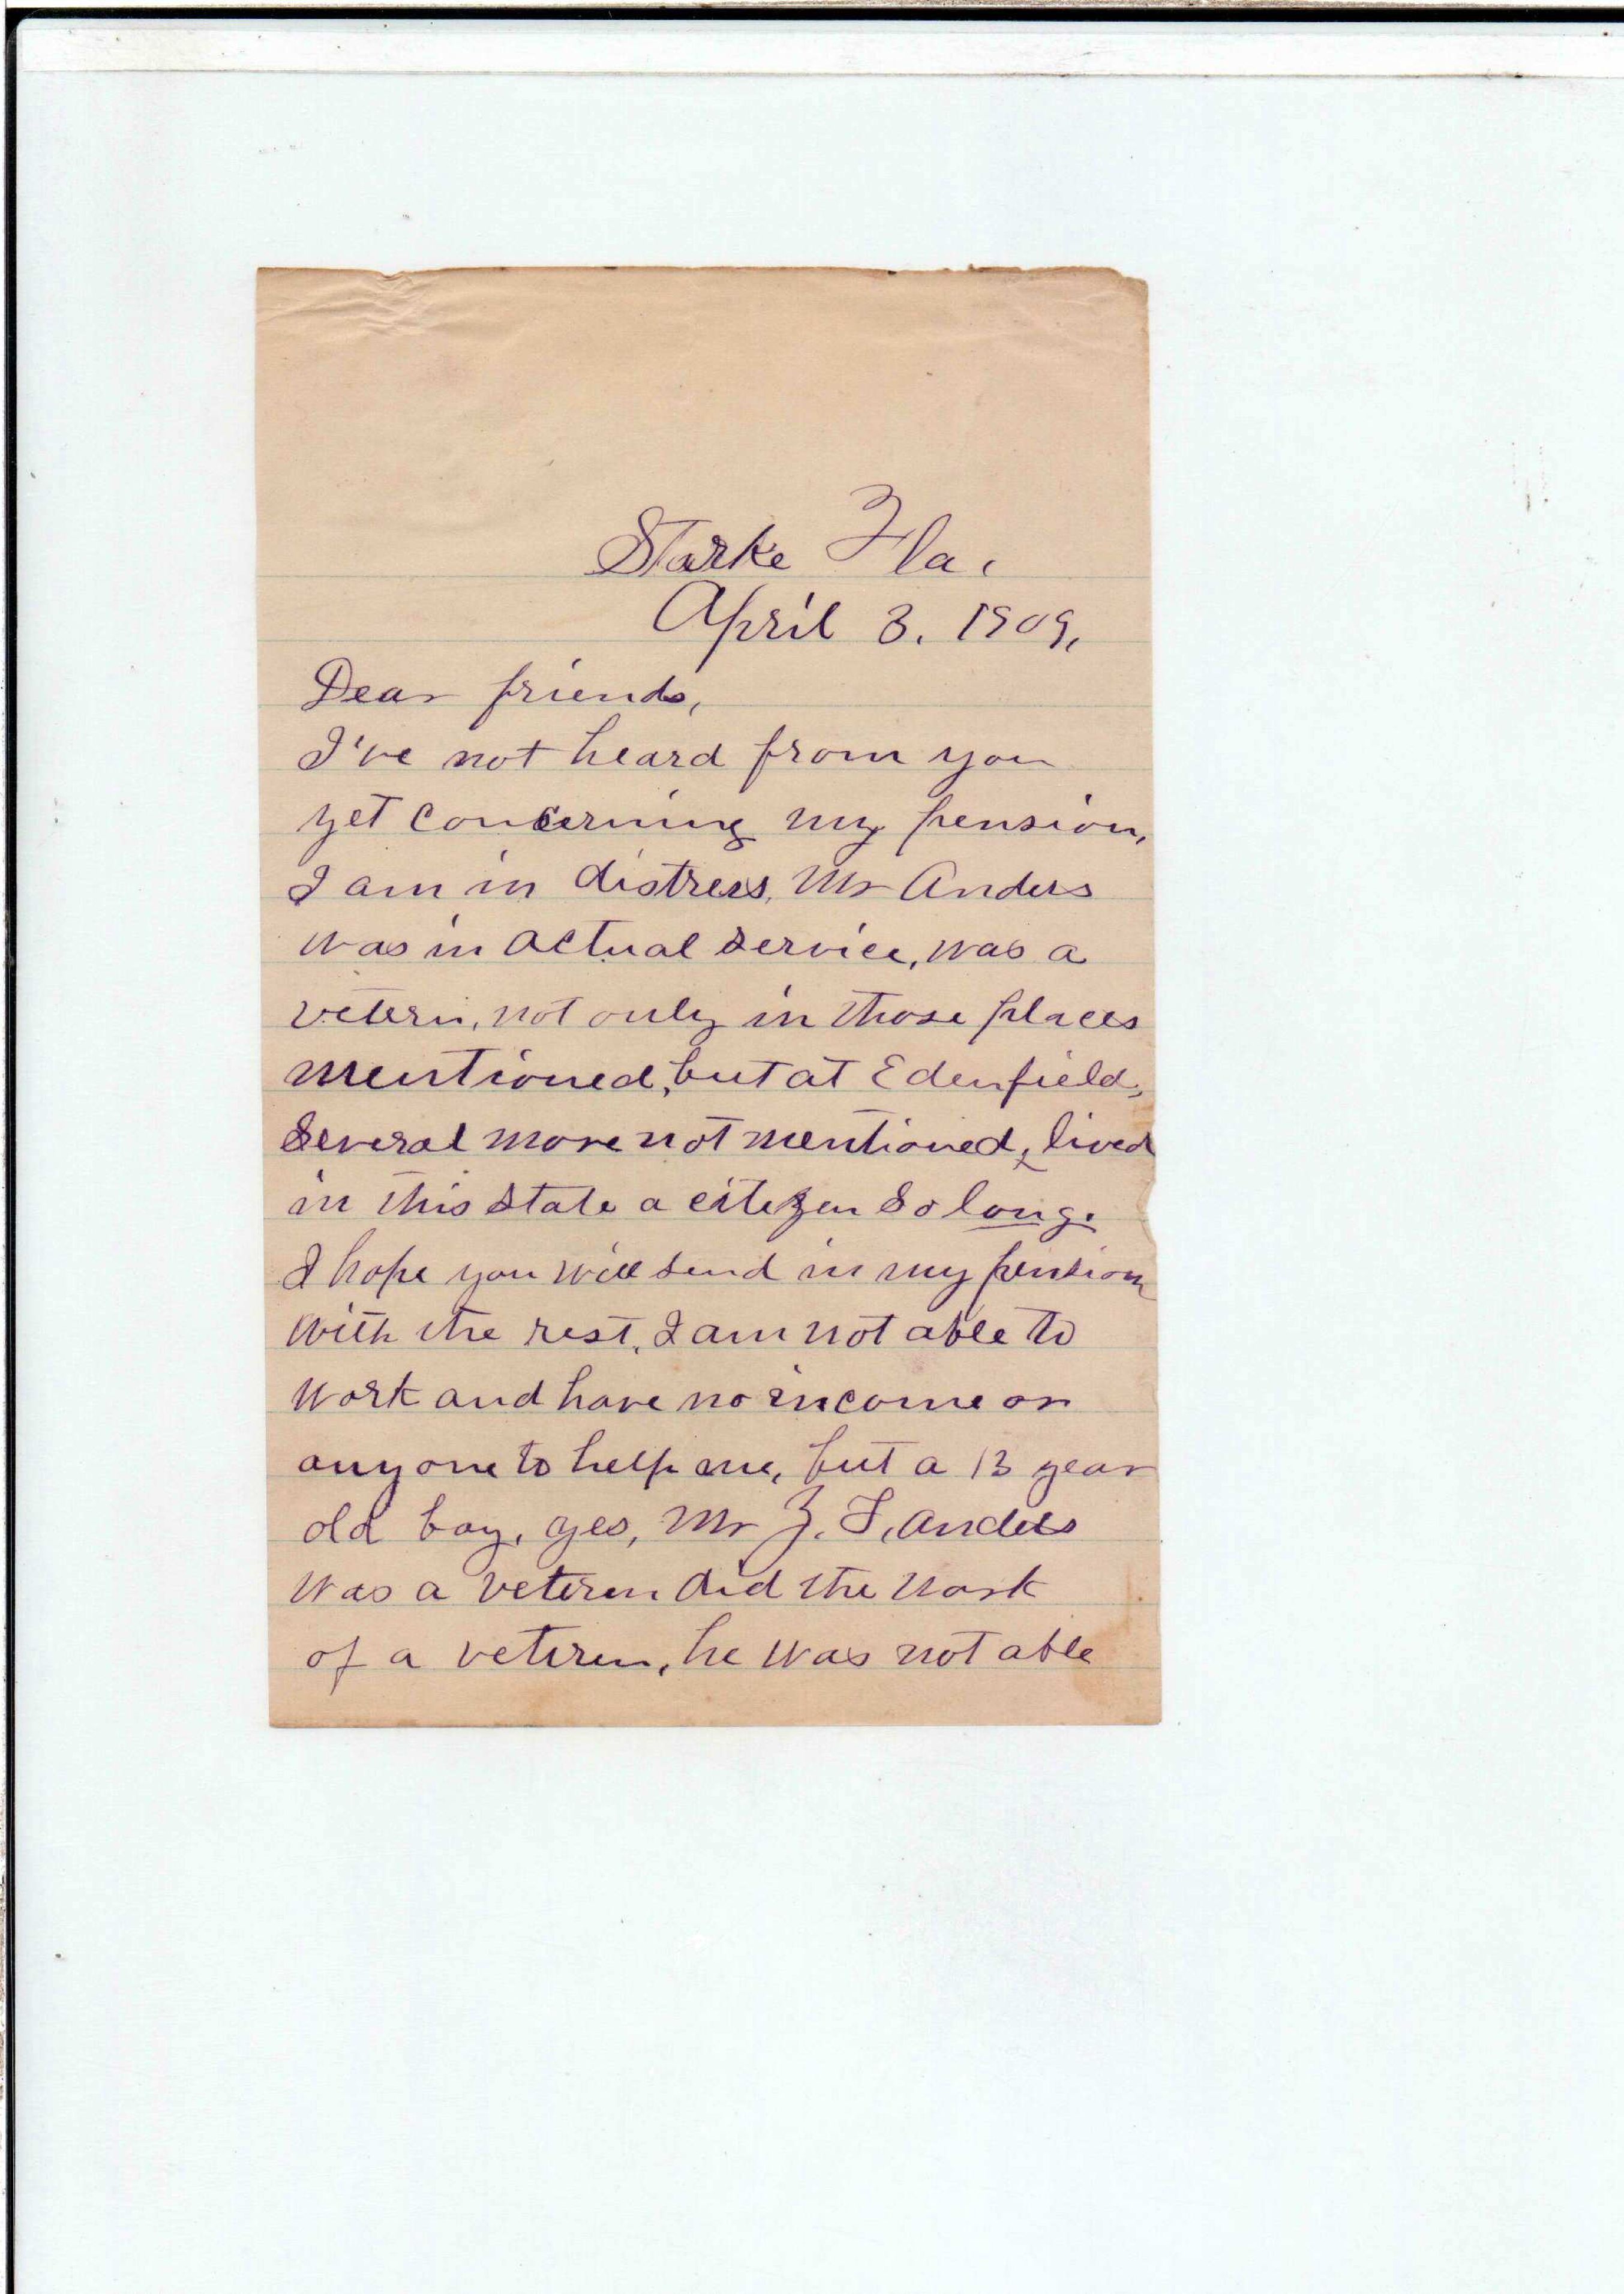 Starke Fla.
April 3. 1909.
Dear friends,
I've not heard from you
yet concerning my pension,
I am in distress, Mr Anders
was in actual service, was a
vetern, not only in those places
mentioned, but at Edenfield,
several more not mentioned, lived
in this state a citezen so long.
I hope you will send in my pension
with the rest, I am not able to
work and have no income or
anyone to help me, but a 13 year
old boy, yes, Mr Z. T. Anders
was a veteren did the work
of a veteren, he was not able